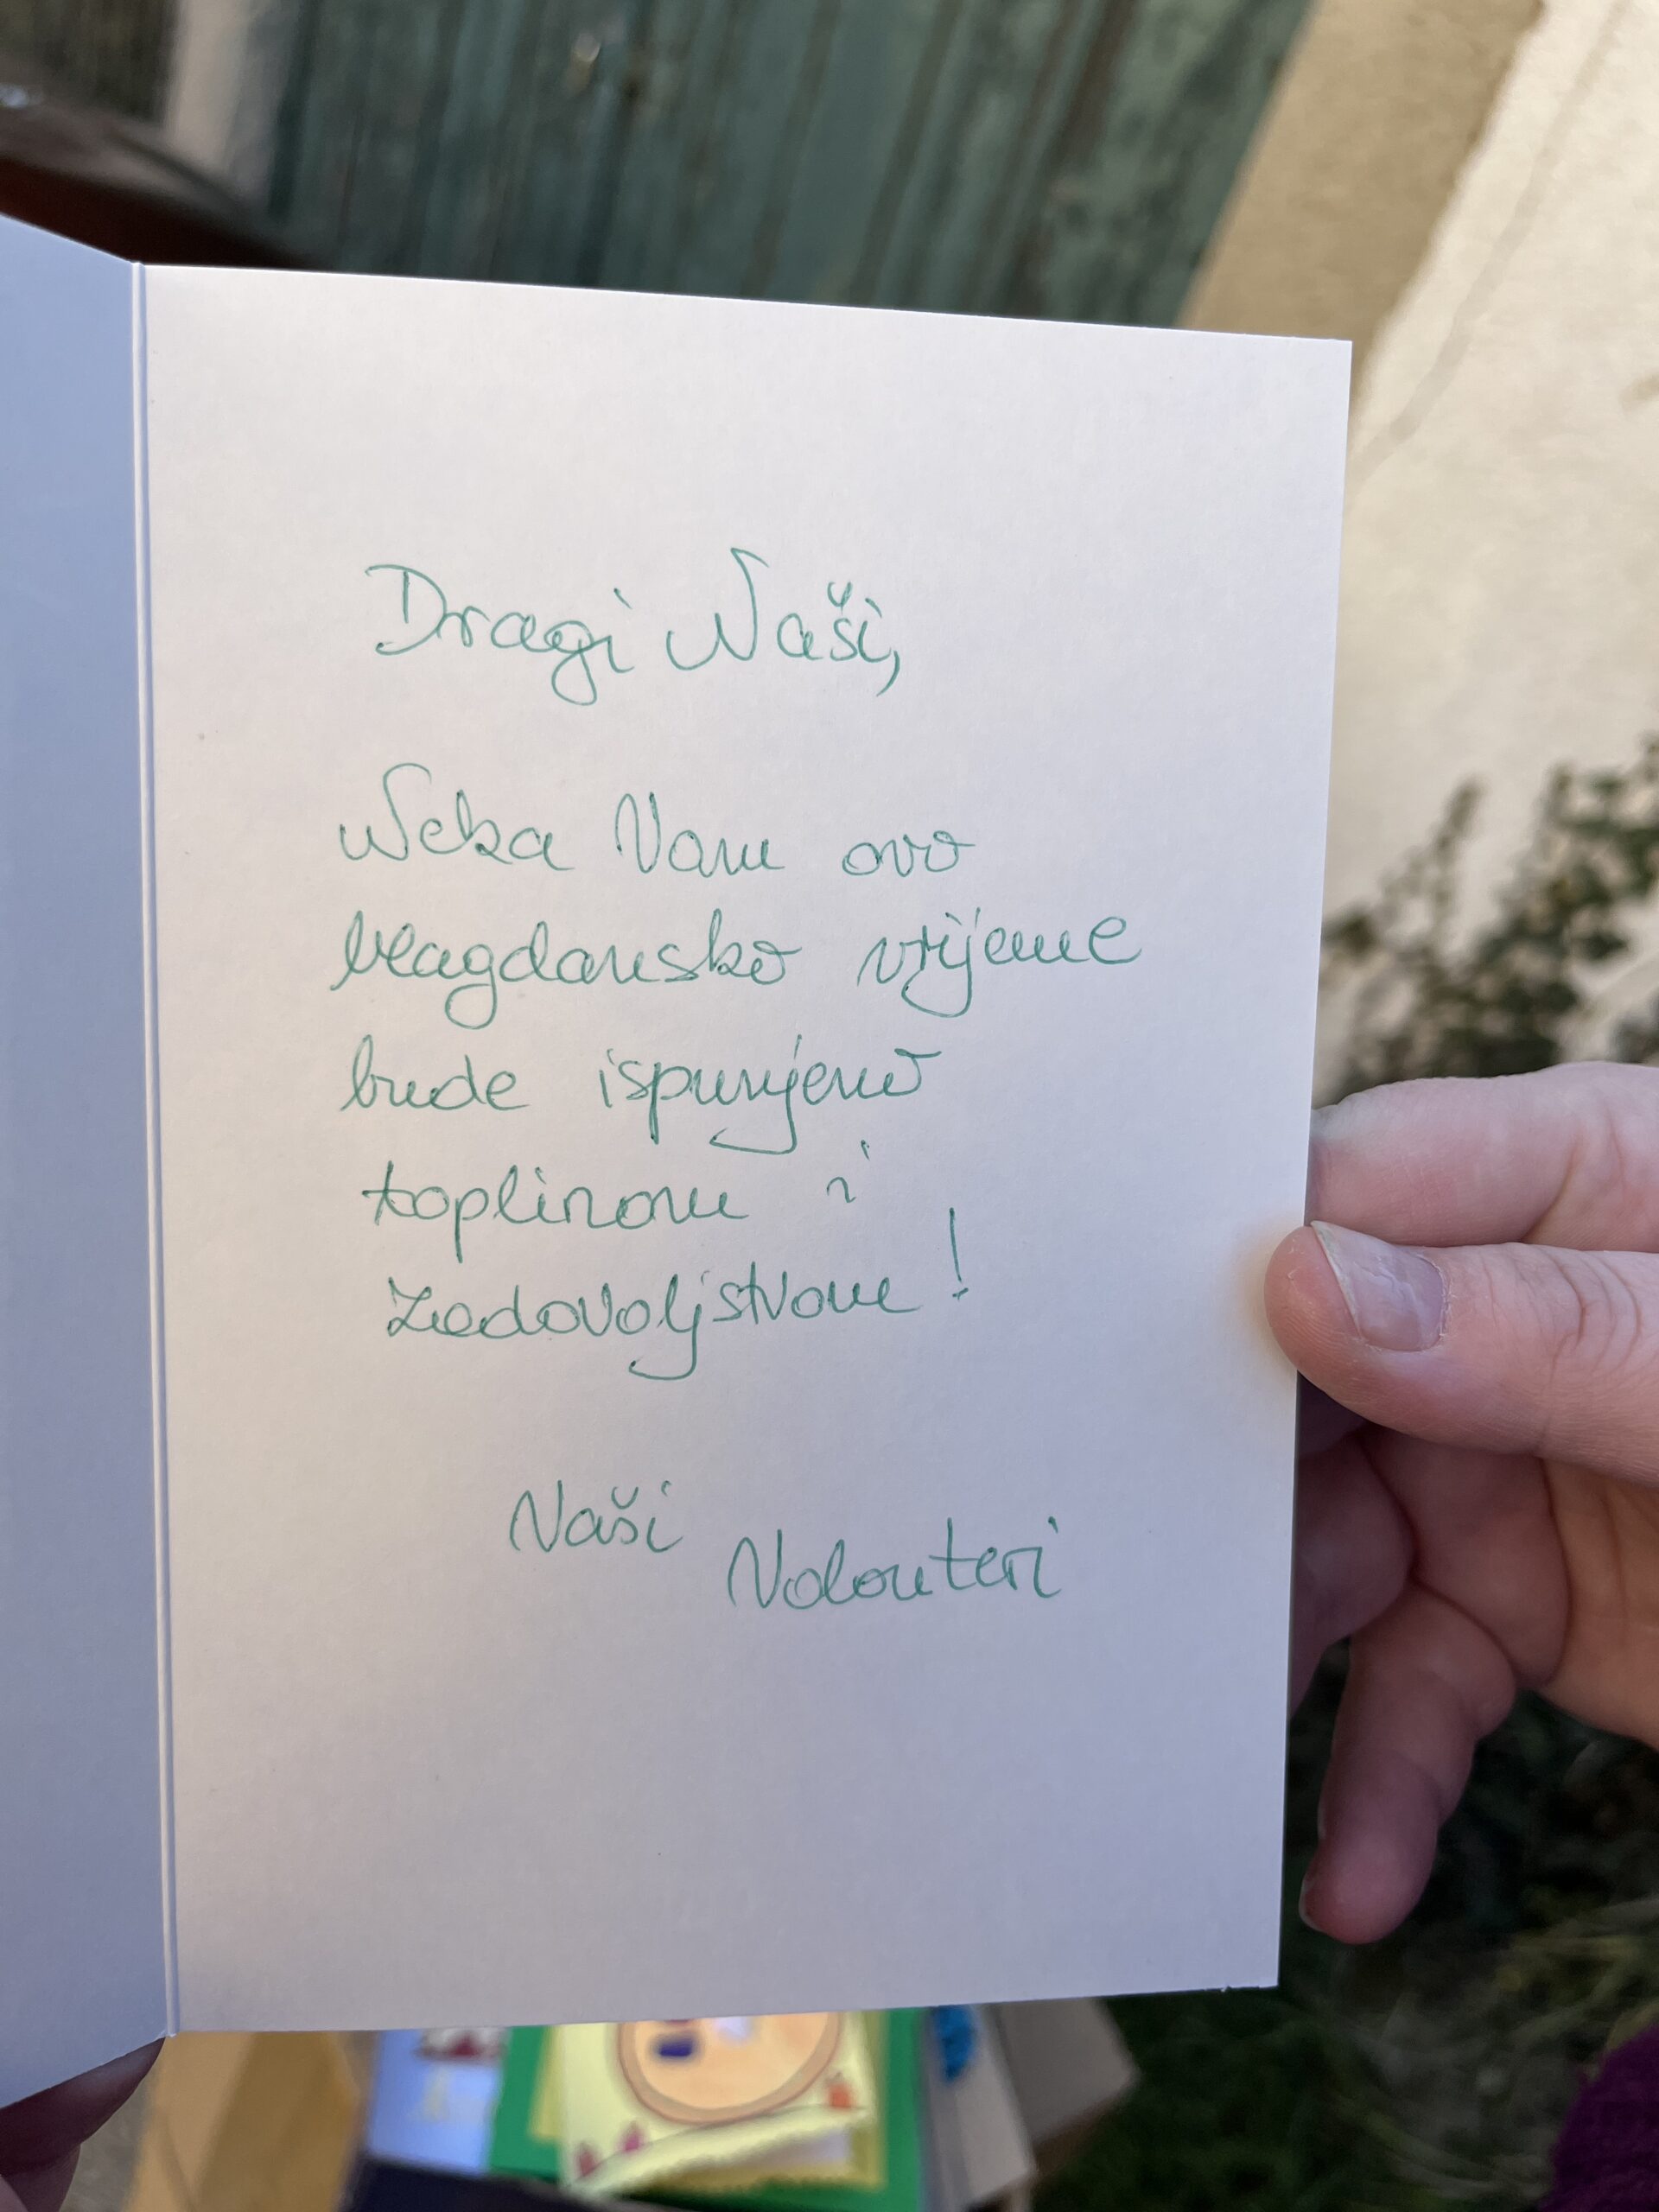 Dragi Naši,
Neka Vam ovo
blagdansko vrijeme
bude ispunjeno
toplinom i
zadovoljstvom!
Naši
Volonteri